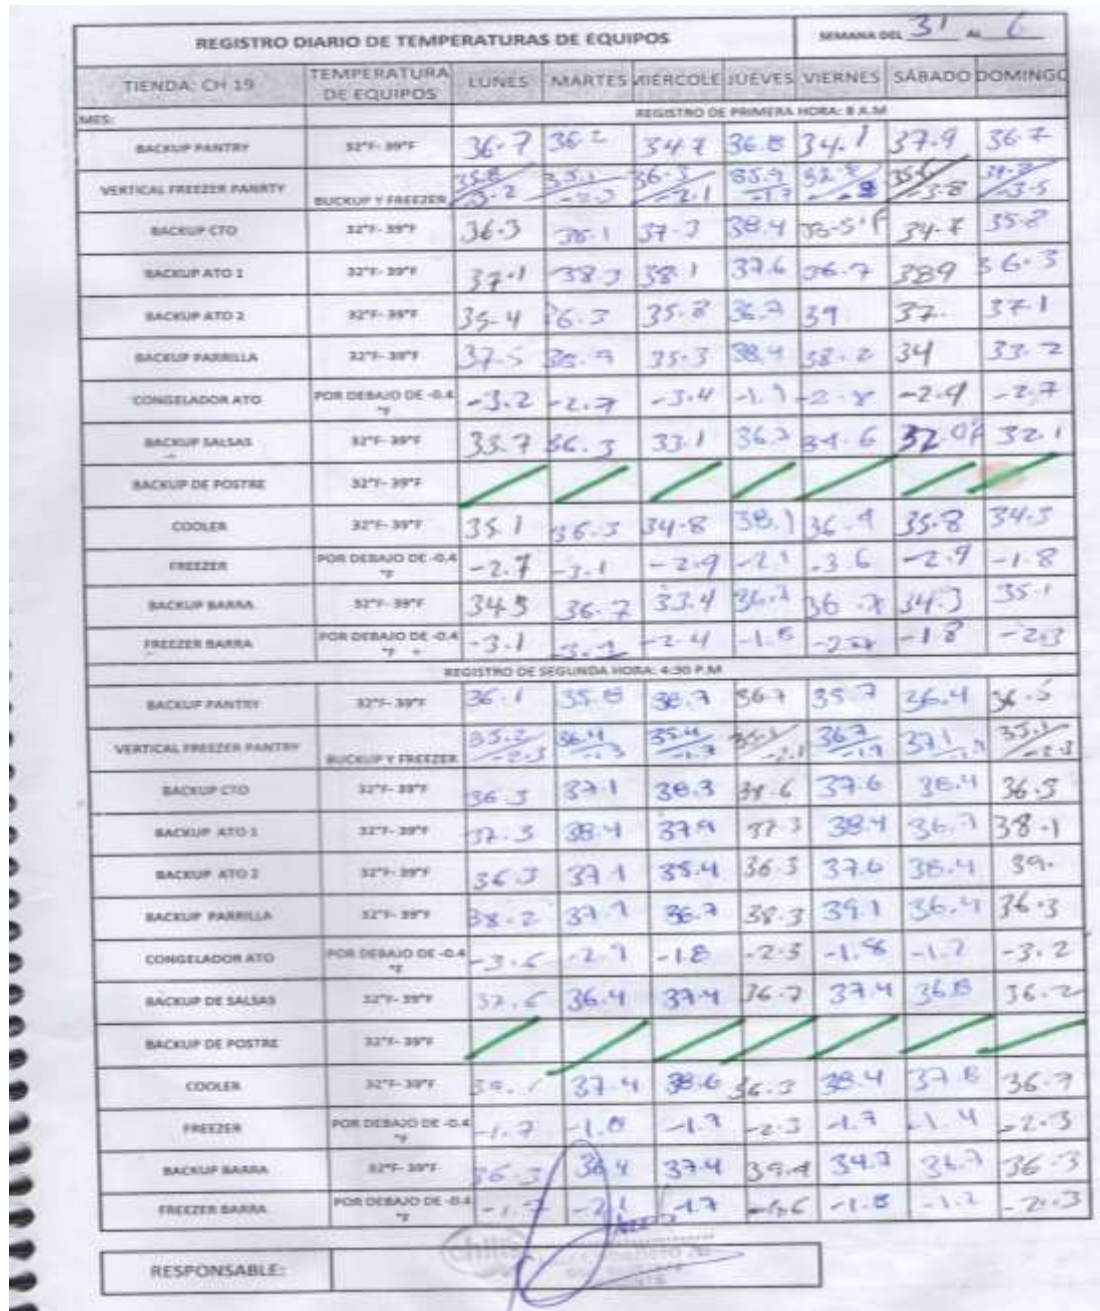 REGISTRO DIARIO DE TEMPERATURAS DE EQUIPOS SEMANA DEL 31 AL 6
TIENDA: CH 19 TEMPERATURA DE EQUIPOS LUNES MARTES MIERCOLE JUEVES VIERNES SÁBADO DOMINGO
MES: REGISTRO DE PRIMERA HORA: 8 A.M
BACKUP PANTRY 32°F- 39°F 36.7 36.2 34.7 36.8 34.1 37.9 36.7
VERTICAL FREEZER PANRTY BUCKUP Y FREEZER 35.8 -3.2 35.1 36.3 -2.1 35.9 -1.7 -3.8 -3.5
BACKUP CTO 32°F- 39°F 36.3 36.1 37.3 38.4 34.7 35.8
BACKUP ATO 1 32°F- 39°F 37.1 38.3 38.1 37.6 36.7 389 36.3
BACKUP ATO 2 32°F- 39°F 35.4 36.3 35.8 36.7 39. 37. 37.1
BACKUP PARRILLA 32°F- 39°F 37.5 35.3 38.4 38.2 34 33.2
CONGELADOR ATO POR DEBAJO DE -0.4 °F -3.2 -2.7 -3.4 -1.9 -2.8 -2.9 -2.7
BACKUP SALSAS 32°F- 39°F 33.7 36.3 33.1 36.3 34.6 32.0F 32.1
BACKUP DE POSTRE 32°F- 39°F
COOLER 32°F- 39°F 35.1 36.3 34.8 38.1 36.9 35.8 34.3
FREEZER POR DEBAJO DE -0.4 °F -2.7 -3.1 -2.9 -2.1 -3.6 -2.9 -1.8
BACKUP BARRA 32°F- 39°F 34.5 36.7 33.4 36.7 36.7 34.3 35.1
FREEZER BARRA POR DEBAJO DE -0.4 °F -3.1 -2.4 -1.8 -1.8 -2.3
REGISTRO DE SEGUNDA HORA: 4:30 P.M
BACKUP PANTRY 32°F- 39°F 36.1 35.8 38.7 36.7 35.7 36.4 36.5
VERTICAL FREEZER PANTRY BUCKUP Y FREEZER 35.2 -2.3 36.4 35.4 -1.7 -2.1 36.7 -1.9 37.1 35.1 -2.3
BACKUP CTO 32°F- 39°F 36.3 37.1 38.3 38.6 37.6 38.4 36.3
BACKUP ATO 1 32°F- 39°F 37.3 38.4 37.9 37.3 38.4 36.7 38.1
BACKUP ATO 2 32°F- 39°F 36.3 37.1 35.4 36.3 37.6 38.4 39.
BACKUP PARRILLA 32°F- 39°F 38.2 37.9 36.7 38.3 39.1 36.4 36.3
CONGELADOR ATO POR DEBAJO DE -0.4 °F -3.6 -2.9 -1.8 -2.3 -1.8 -1.2 -3.2
BACKUP DE SALSAS 32°F- 39°F 37.6 36.4 37.4 36.7 37.4 36.8 36.2
BACKUP DE POSTRE 32°F- 39°F
COOLER 32°F- 39°F 37.4 38.6 36.3 38.4 37.8 36.7
FREEZER POR DEBAJO DE -0.4 °F -1.7 -1.8 -1.9 -2.3 -1.7 -1.4 -2.3
BACKUP BARRA 32°F- 39°F 36.3 36.4 37.4 34.7 36.7 36.3
FREEZER BARRA POR DEBAJO DE -0.4 °F -1.7 -2.1 -1.7 -1.6 -1.8 -1.2 -2.3
RESPONSABLE: